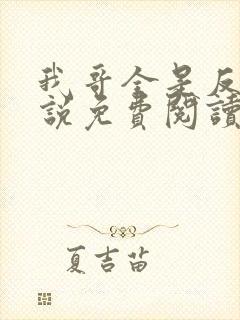 我哥全是反
說免費閱讀
夏吉苗